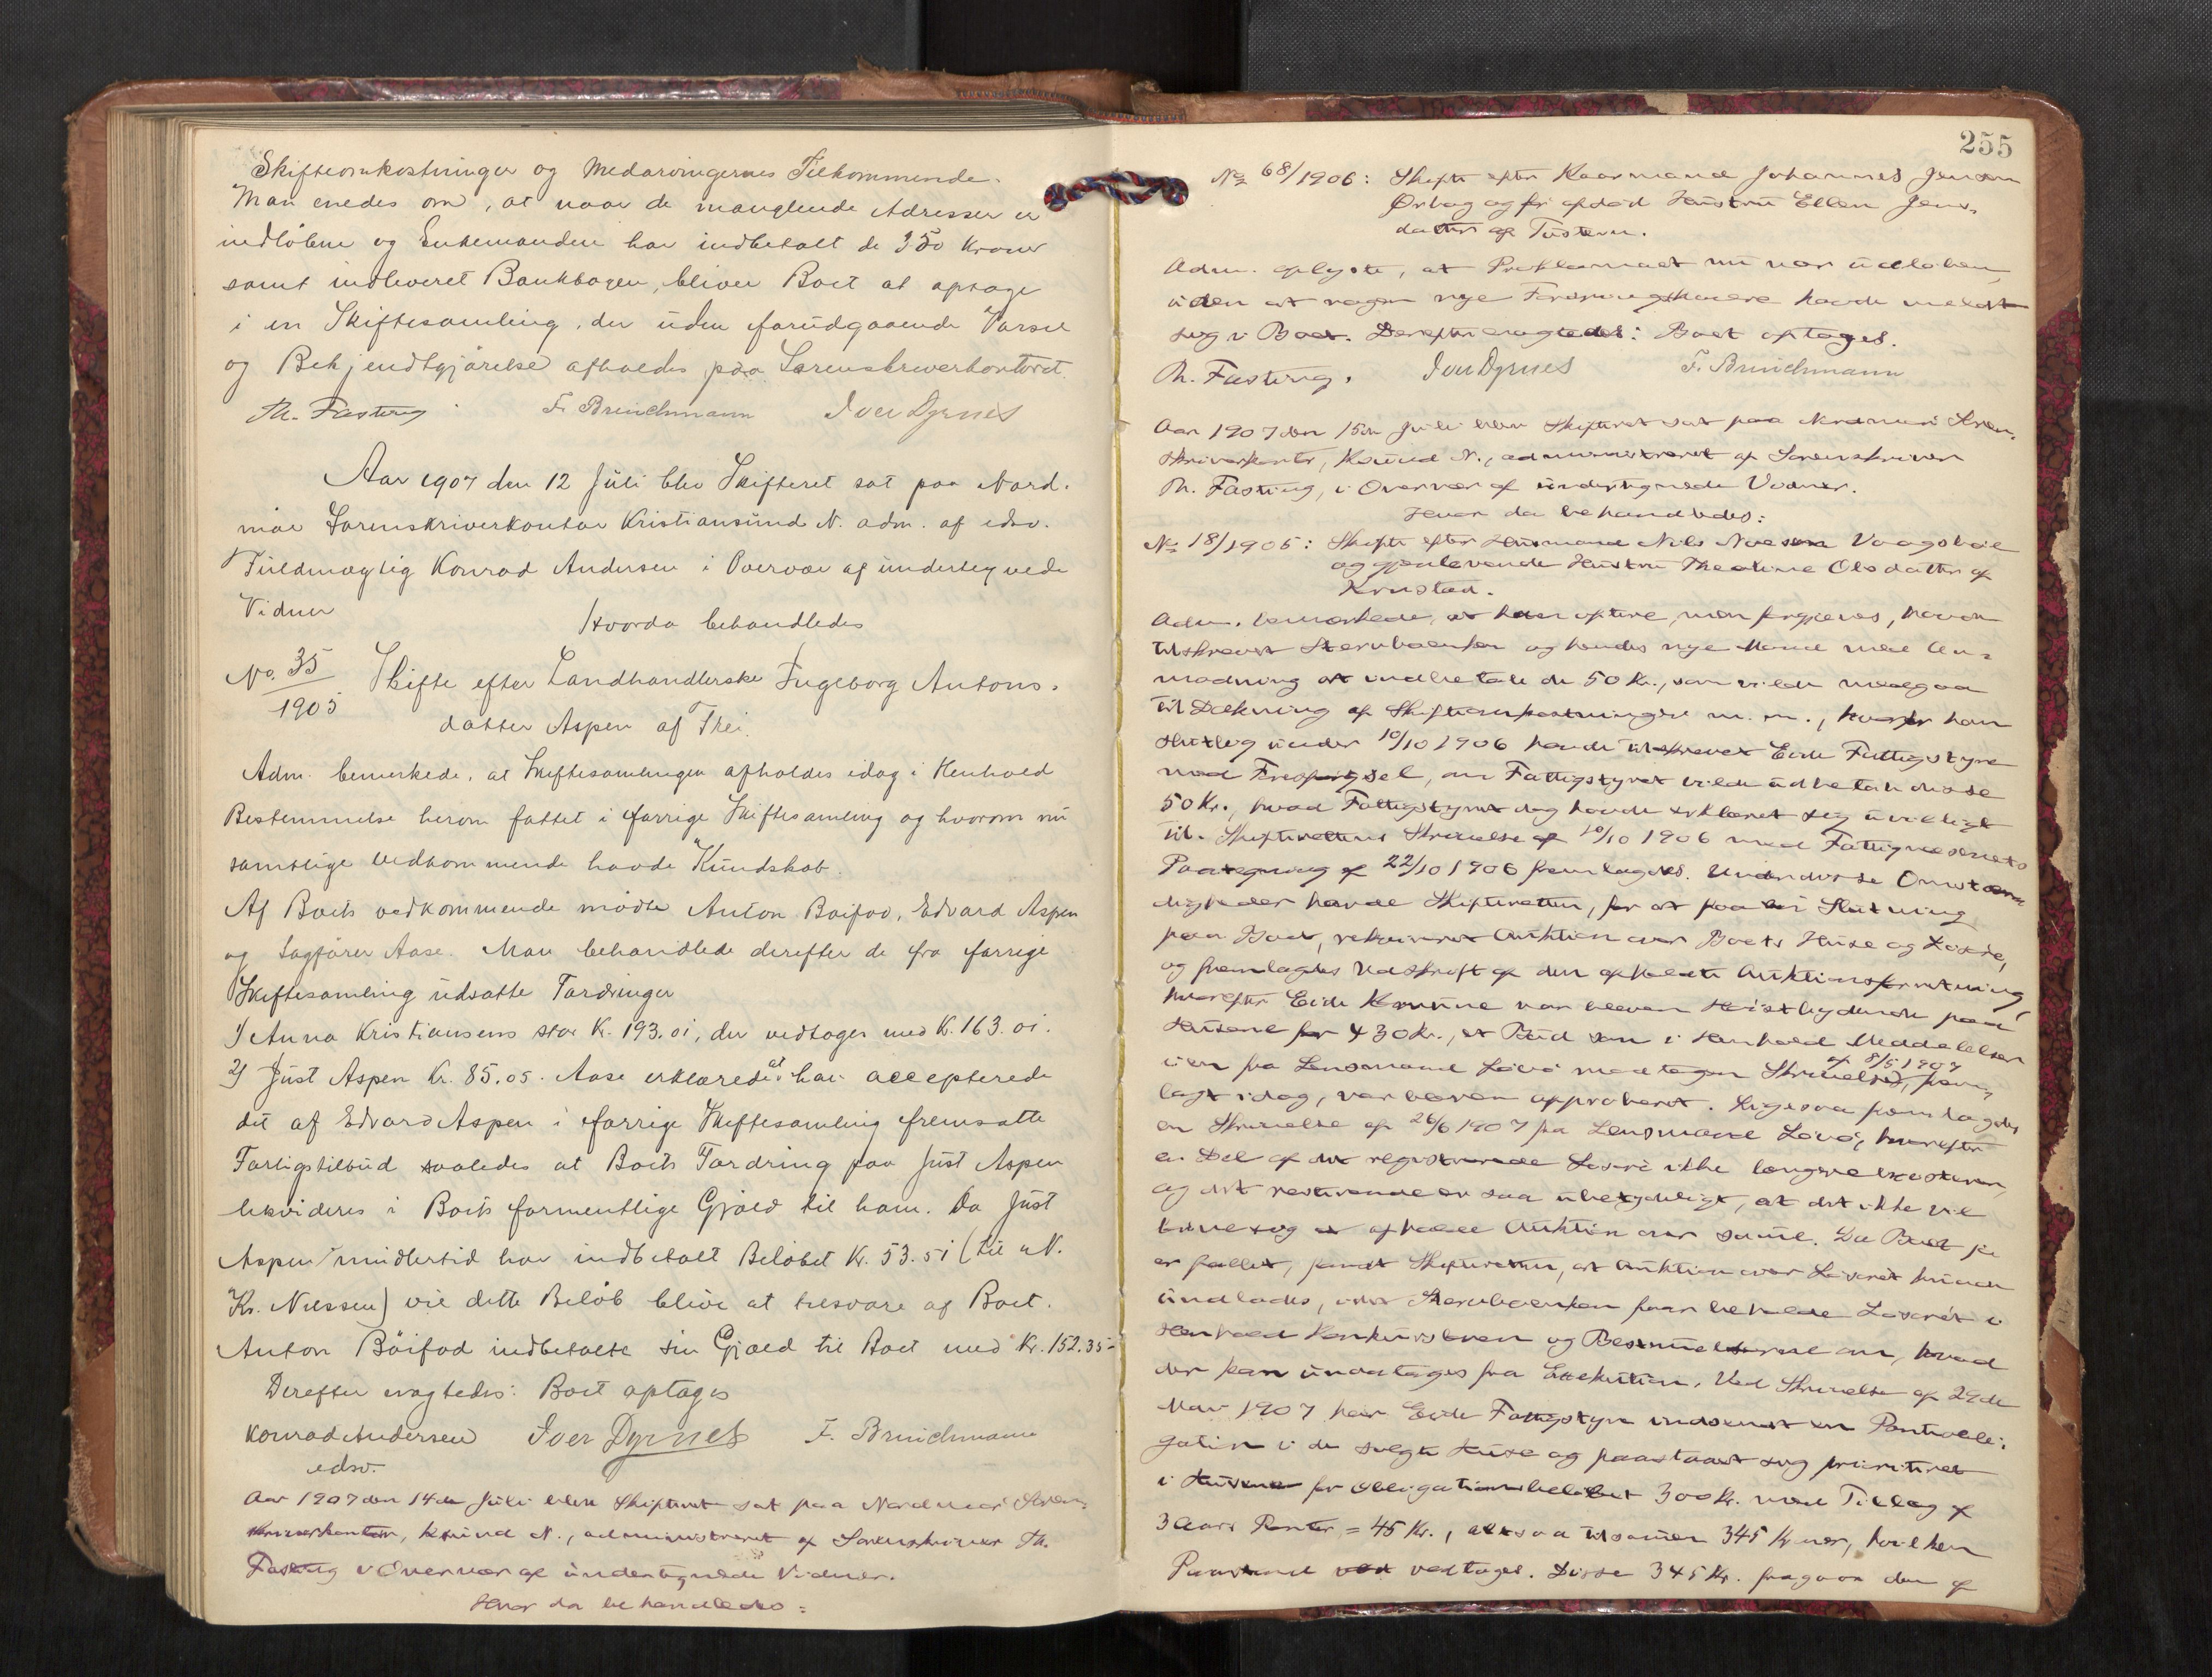 Skifteomkostninger og Medarvingernes Tilkommende.
Man enedes om, at naar de manglende Adresser er
indløbne og Enkemanden har indbetalt de 350 Kroner
samt indleveret Bankbogen, bliver Boet at optage
i en Skiftesamling, der uden forudgaaende Varsel
og Bekjendtgjørelse afholdes paa Sorenskriverkontoret.
Th. Fasting F. Brinchmann Iver Dyrnes
Aar 1907 den 12 Juli blev Skifteret sat paa Nord-
møre Sorenskriverkontor Kristiansund N. adm. af edsv.
Fuldmægtig Konrad Andersen i Overvær af undertegnede
Vidner
Hvorda behandledes
No. 35/1905 Skifte efter Landhandlerske Ingeborg Antons-
datter Aspen af Frei.
Adm. bemerkede, at Skiftesamlingen afholdes idag i Henhold
Bestemmelse herom fattet i forrige Skiftesamling og hvorom nu
samtlige vedkommende havde Kundskab.
Af Boets vedkommende mødte Anton Bøifod, Edvard Aspen
og Sagfører Aase. Man behandlede derefter de fra forrige
Skiftesamling udsatte Fordringer
1) Anna Kristiansens stor Kr. 193.01, der vedtoges med Kr. 163.01.
2) Just Aspen Kr. 85.05. Aase erklærede at han accepterede
det af Edvard Aspen i forrige Skiftesamling fremsatte
Forligstilbud saaledes at Boets Fordring paa Just Aspen
likvideres i Boets formentlige Gjæld til ham. Da Just
Aspen imidlertid har indbetalt Beløbet Kr. 53.51 (til N.
Kr. Nilssen) vil dette Beløb blive at tilsvare af Boet.
Anton Bøifod indbetalte sin Gjæld til Boet med Kr. 152.35-
Derefter eragtedes: Boet optages
Konrad Andersen Iver Dyrnes F. Brinchmann
edsv.
Aar 1907 den 14de Juli blev Skifteret sat paa Nordmøre Soren-
skriverkontor, Krsund N., administreret af Sorenskriver Th.
Fasting i Overvær af undertegnede Vidner.
Hvor da behandledes:
255
No 68/1906: Skifte efter Kaarmand Johannes Jensen
Ørbog og før afdød Hustru Ellen Jens-
datter af Tustern.
Adm. oplyste, at Proklamaet nu var udløben
uden at nogen nye Fordringshavere havde meldt
sig i Boet. Derefter eragtedes: Boet optages.
Th. Fasting. Iver Dyrnes F. Brinchmann
Aar 1907 den 15de Juli blev Skifteret sat paa Nordmøre Soren-
skriverkontor, Krsund N., administreret af Sorenskriver
Th. Fasting, i Overvær af undertegnede Vidner.
Hvor da behandledes:
No 18/1905: Skifte efter Husmand Nils Nilsen Vaagsbøe
og gjenlevende Hustru Theoline Olsdatter af
Kornstad.
Adm. bemærkede, at han oftere, men forgjæves, havde
tilskrevet Stervboenken og hendes nye Mand med An-
modning at indbetale de 50 Kr., som vilde medgaa
til Dækning af Skifteomkostninger m. m., hvorfor han
sluttelig under 10/10 1906 havde tilskrevet Eide Fattigstyre
med Forespørgsel, om Fattigstyret vilde udbetale disse
50 Kr., hvad Fattigstyret dog havde erklæret sig uvilligt
til. Skifterettens Skrivelse af 10/10 1906 med Fattigvæsenets
Paategning af 22/10 1906 fremlagdes. Under disse Omstæn-
digheder havde Skifteretten, for at faa en Slutning
paa Boet, rekvireret Auktion over Boets Huse og Løsøre,
og fremlagdes Udskrift af den afholdte Auktionsforretning,
hvorefter Eide Kommune var bleven Høistbydende paa
Husene for 430 Kr., et Bud som i Henhold Meddelelsen
i en fra Lensmand Løvø modtagen Skrivelse af 8/5 1907, frem-
lagt idag, var bleven approberet. Ligesaa fremlagdes
en Skrivelse af 26/6 1907 fra Lensmand Løvø, hvorefter
en Del af det registrerede Løsøre ikke længere existerer,
og det resterende er saa ubetydeligt, at det ikke vil
lønne sig at afholde Auktion over samme. Da Boet jo
er fallit, fandt Skifteretten, at Auktion over Løsøret kunde
undlades, idet Stervboenken faar beholde Løsøret i
Henhold Konkursloven og Bestemmelserne om, hvad
der kan undtages fra Exekution. Ved Skrivelse af 29de
Mai 1907 har Eide Fattigstyre indsendt en Pantobli-
gation i de solgte Huse og paastaaet sig prioriteret
i Husene for Obligationsbeløbet 300 Kr. med Tillæg af
3 Aars Renter = 45 Kr., altsaa tilsammen 345 Kroner, hvilken
Paastand vedtages. Disse 345 Kr. fragaar den af